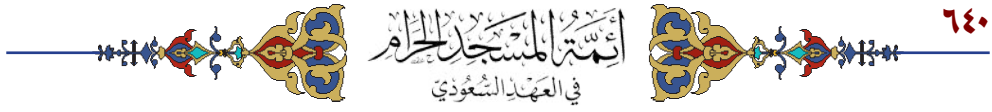 ٦٤٠
أَئِمَّةُ المَسْجِدِ الحَرَامِ
فِي العَهْدِ السُّعُودِيّ